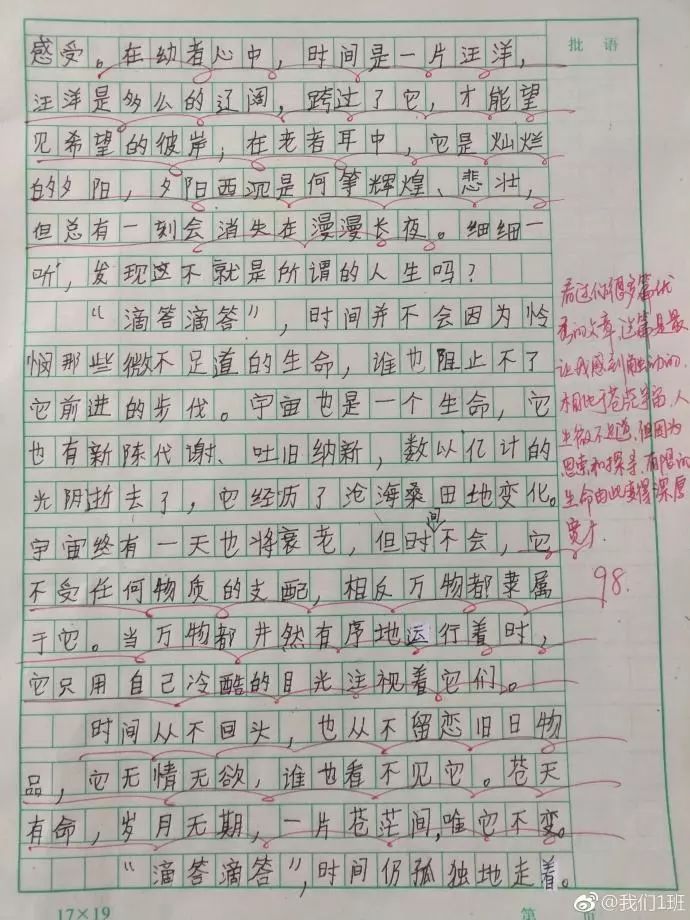 批语
感受。在幼者心中，时间是一片汪洋，
汪洋是多么的辽阔，跨过了它，才能望
见希望的彼岸；在老者耳中，它是灿烂
的夕阳，夕阳西沉是何等辉煌、悲壮，
但总有一刻会消失在漫漫长夜。细细一
听，发现这不就是所谓的人生吗？
“滴答滴答”，时间并不会因为怜
悯那些微不足道的生命，谁也阻止不了
它前进的步伐。宇宙也是一个生命，它
也有新陈代谢、吐旧纳新，数以亿计的
光阴逝去了，它经历了沧海桑田地变化。
宇宙终有一天也将衰老，但时间不会，它
不受任何物质的支配，相反万物都隶属
于它。当万物都井然有序地运行着时，
它只用自己冷酷的目光注视着它们。
时间从不回头，也从不留恋旧日物
品，它无情无欲，谁也看不见它。苍天
有命，岁月无期，一片苍茫间，唯它不变。
“滴答滴答”，时间仍孤独地走着。
看过你很多篇优
秀的文章，这篇是最
让我感到触动的，
相比于苍茫宇宙，人
生微不足道，但因为
思索和探寻，有限的
生命由此变得深厚
宽广
98.
17×19
第 页
@我们1班